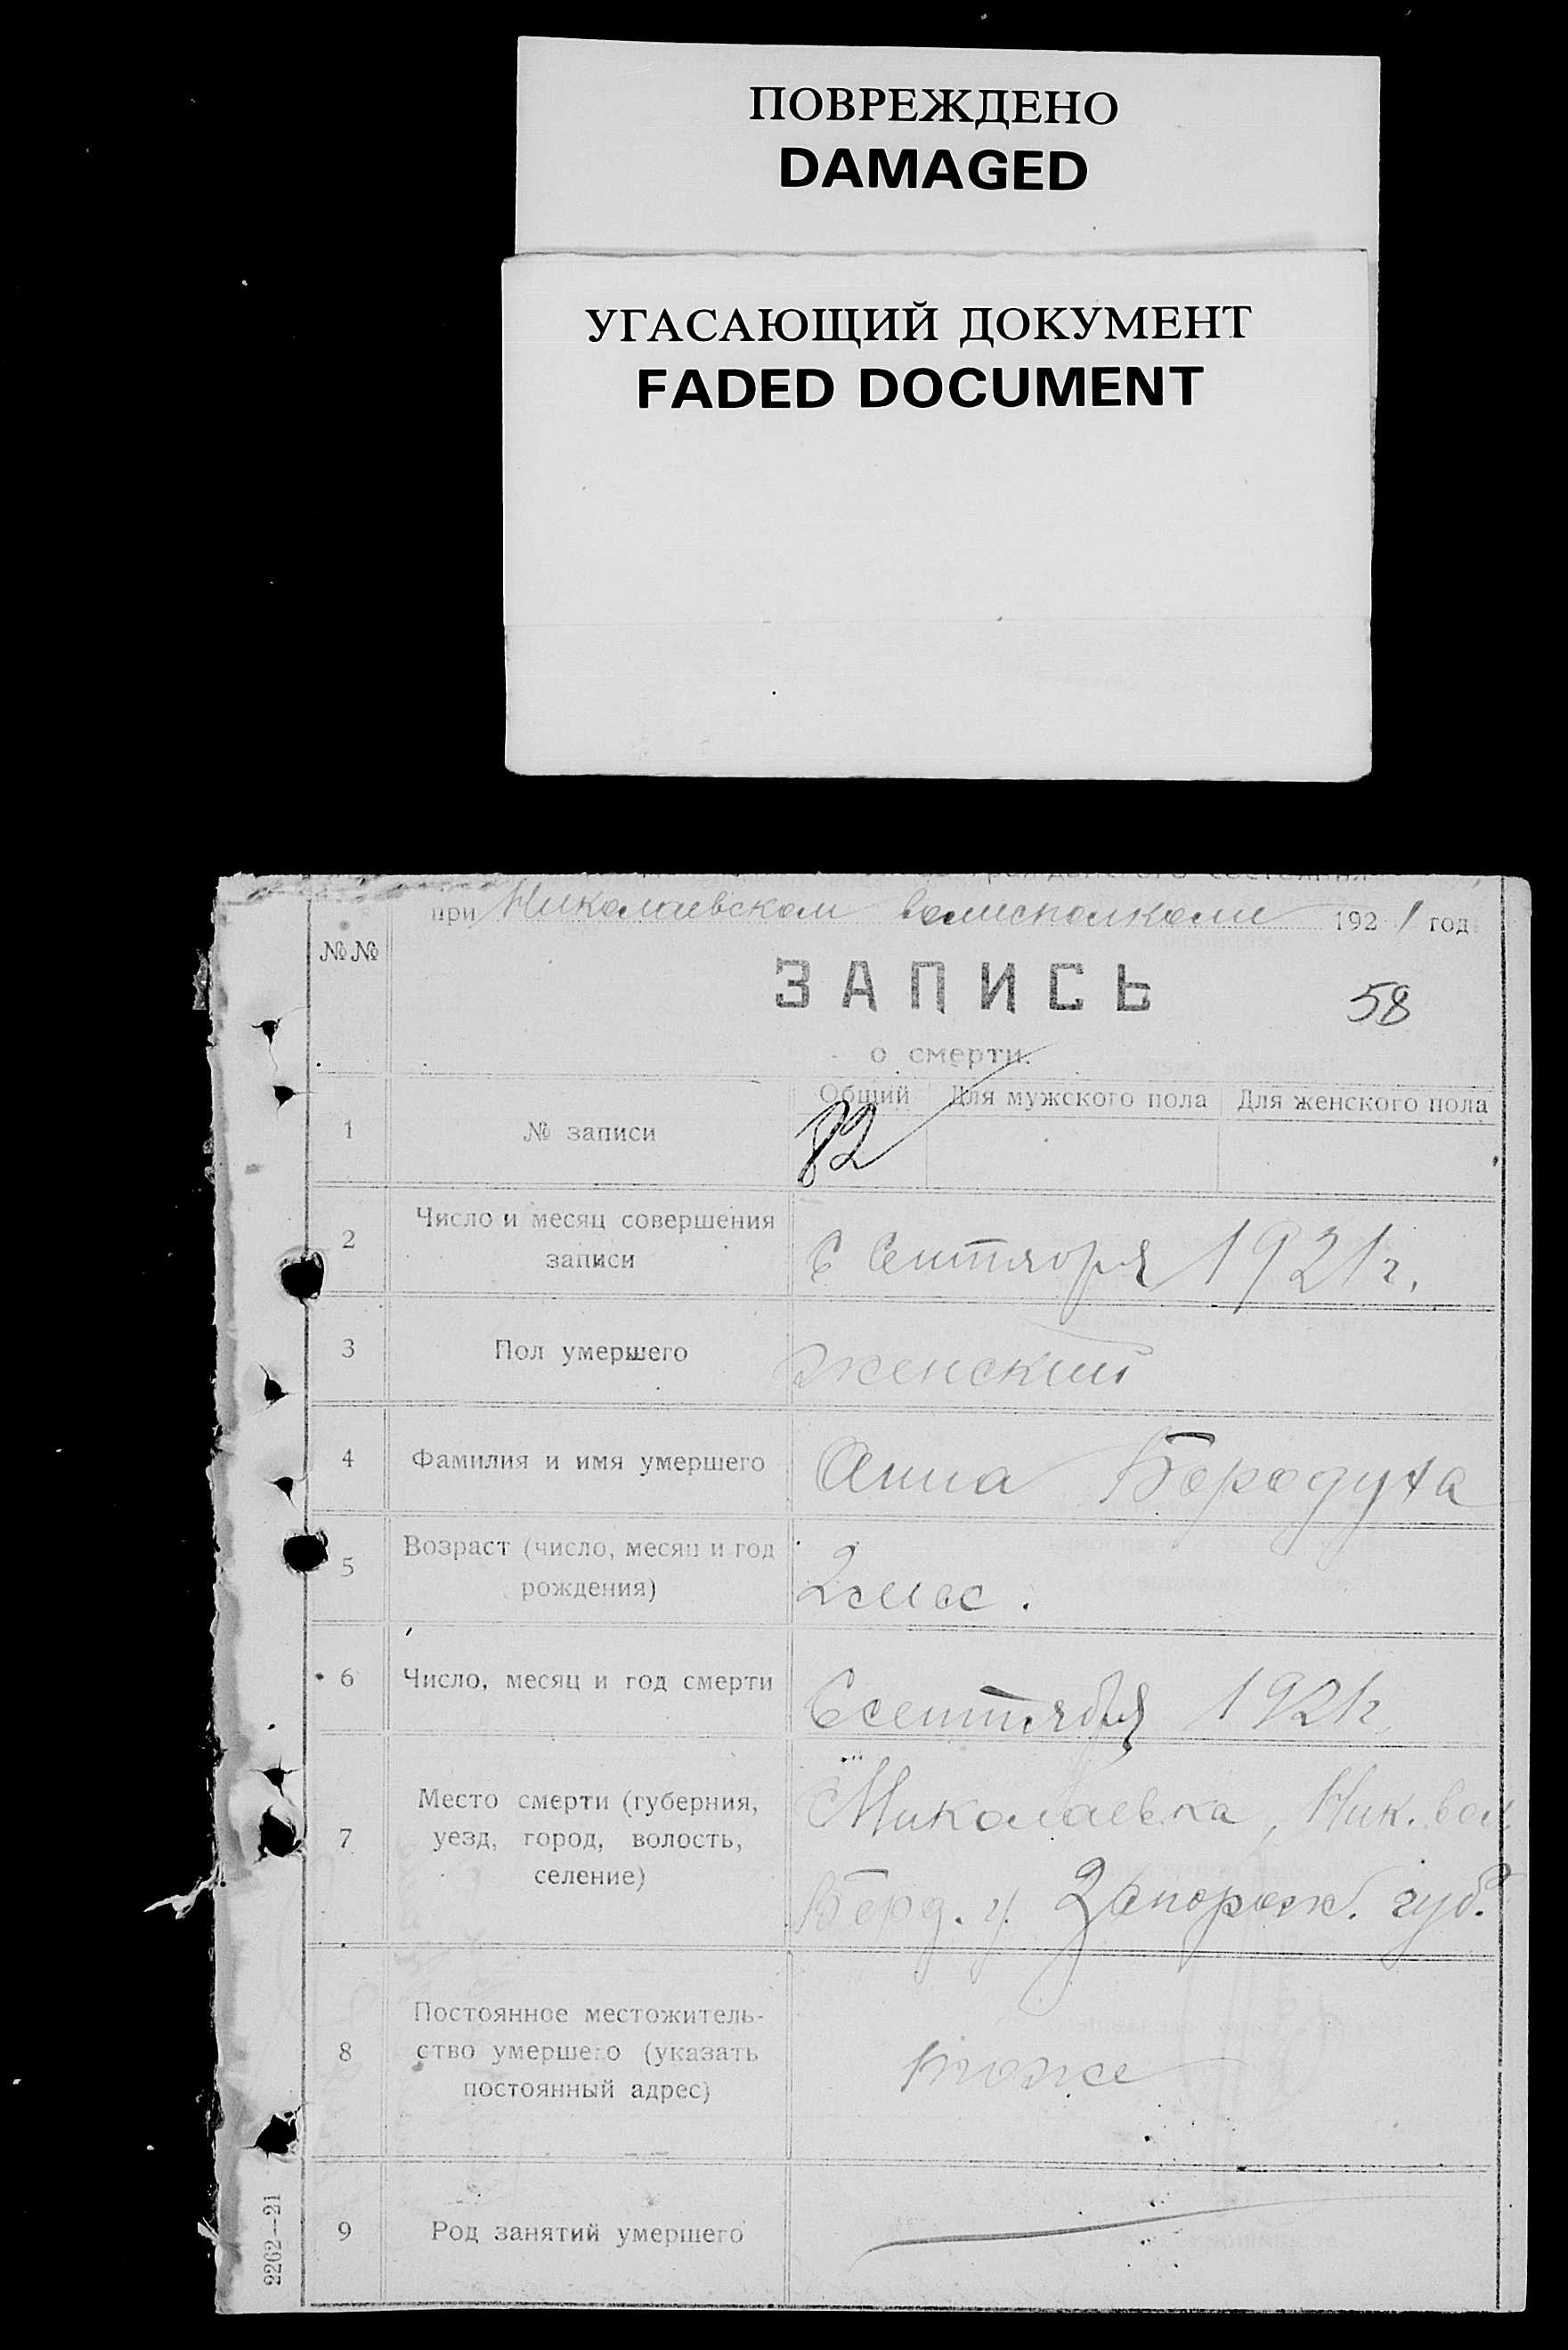 ПОВРЕЖДЕНО
DAMAGED
УГАСАЮЩИЙ ДОКУМЕНТ
FADED DOCUMENT
при Николаевском волисполкоме 1921 год
№№
ЗАПИСЬ
58
о смерти.
Общий Для мужского пола Для женского пола
1 № записи 82
2 Число и месяц совершения
записи
6 Сентября 1921 г.
3 Пол умершего женский
4 Фамилия и имя умершего Анна Бородута
5 Возраст (число, месяц и год
рождения)
2 мес.
6 Число, месяц и год смерти 6 сентября 1921 г.
7 Место смерти (губерния,
уезд, город, волость,
селение)
Николаевка, Ник. вол
Берд. у. Запорож. губ.
8 Постоянное местожитель-
ство умершего (указать
постоянный адрес)
тоже
9 Род занятий умершего
2262—21